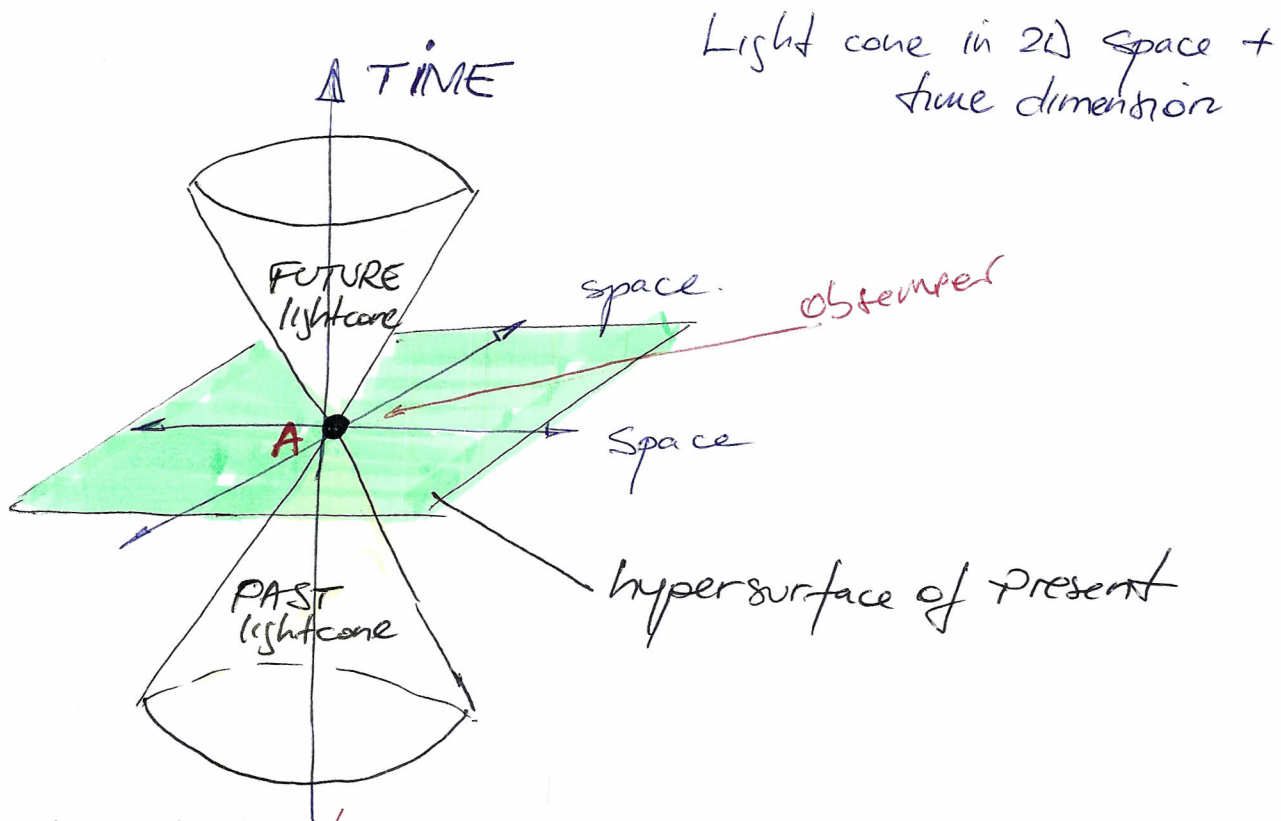 Light cone in 2D space +
time dimension
TIME
FUTURE
lightcone
space.
observer
A
Space
hypersurface of present
PAST
lightcone